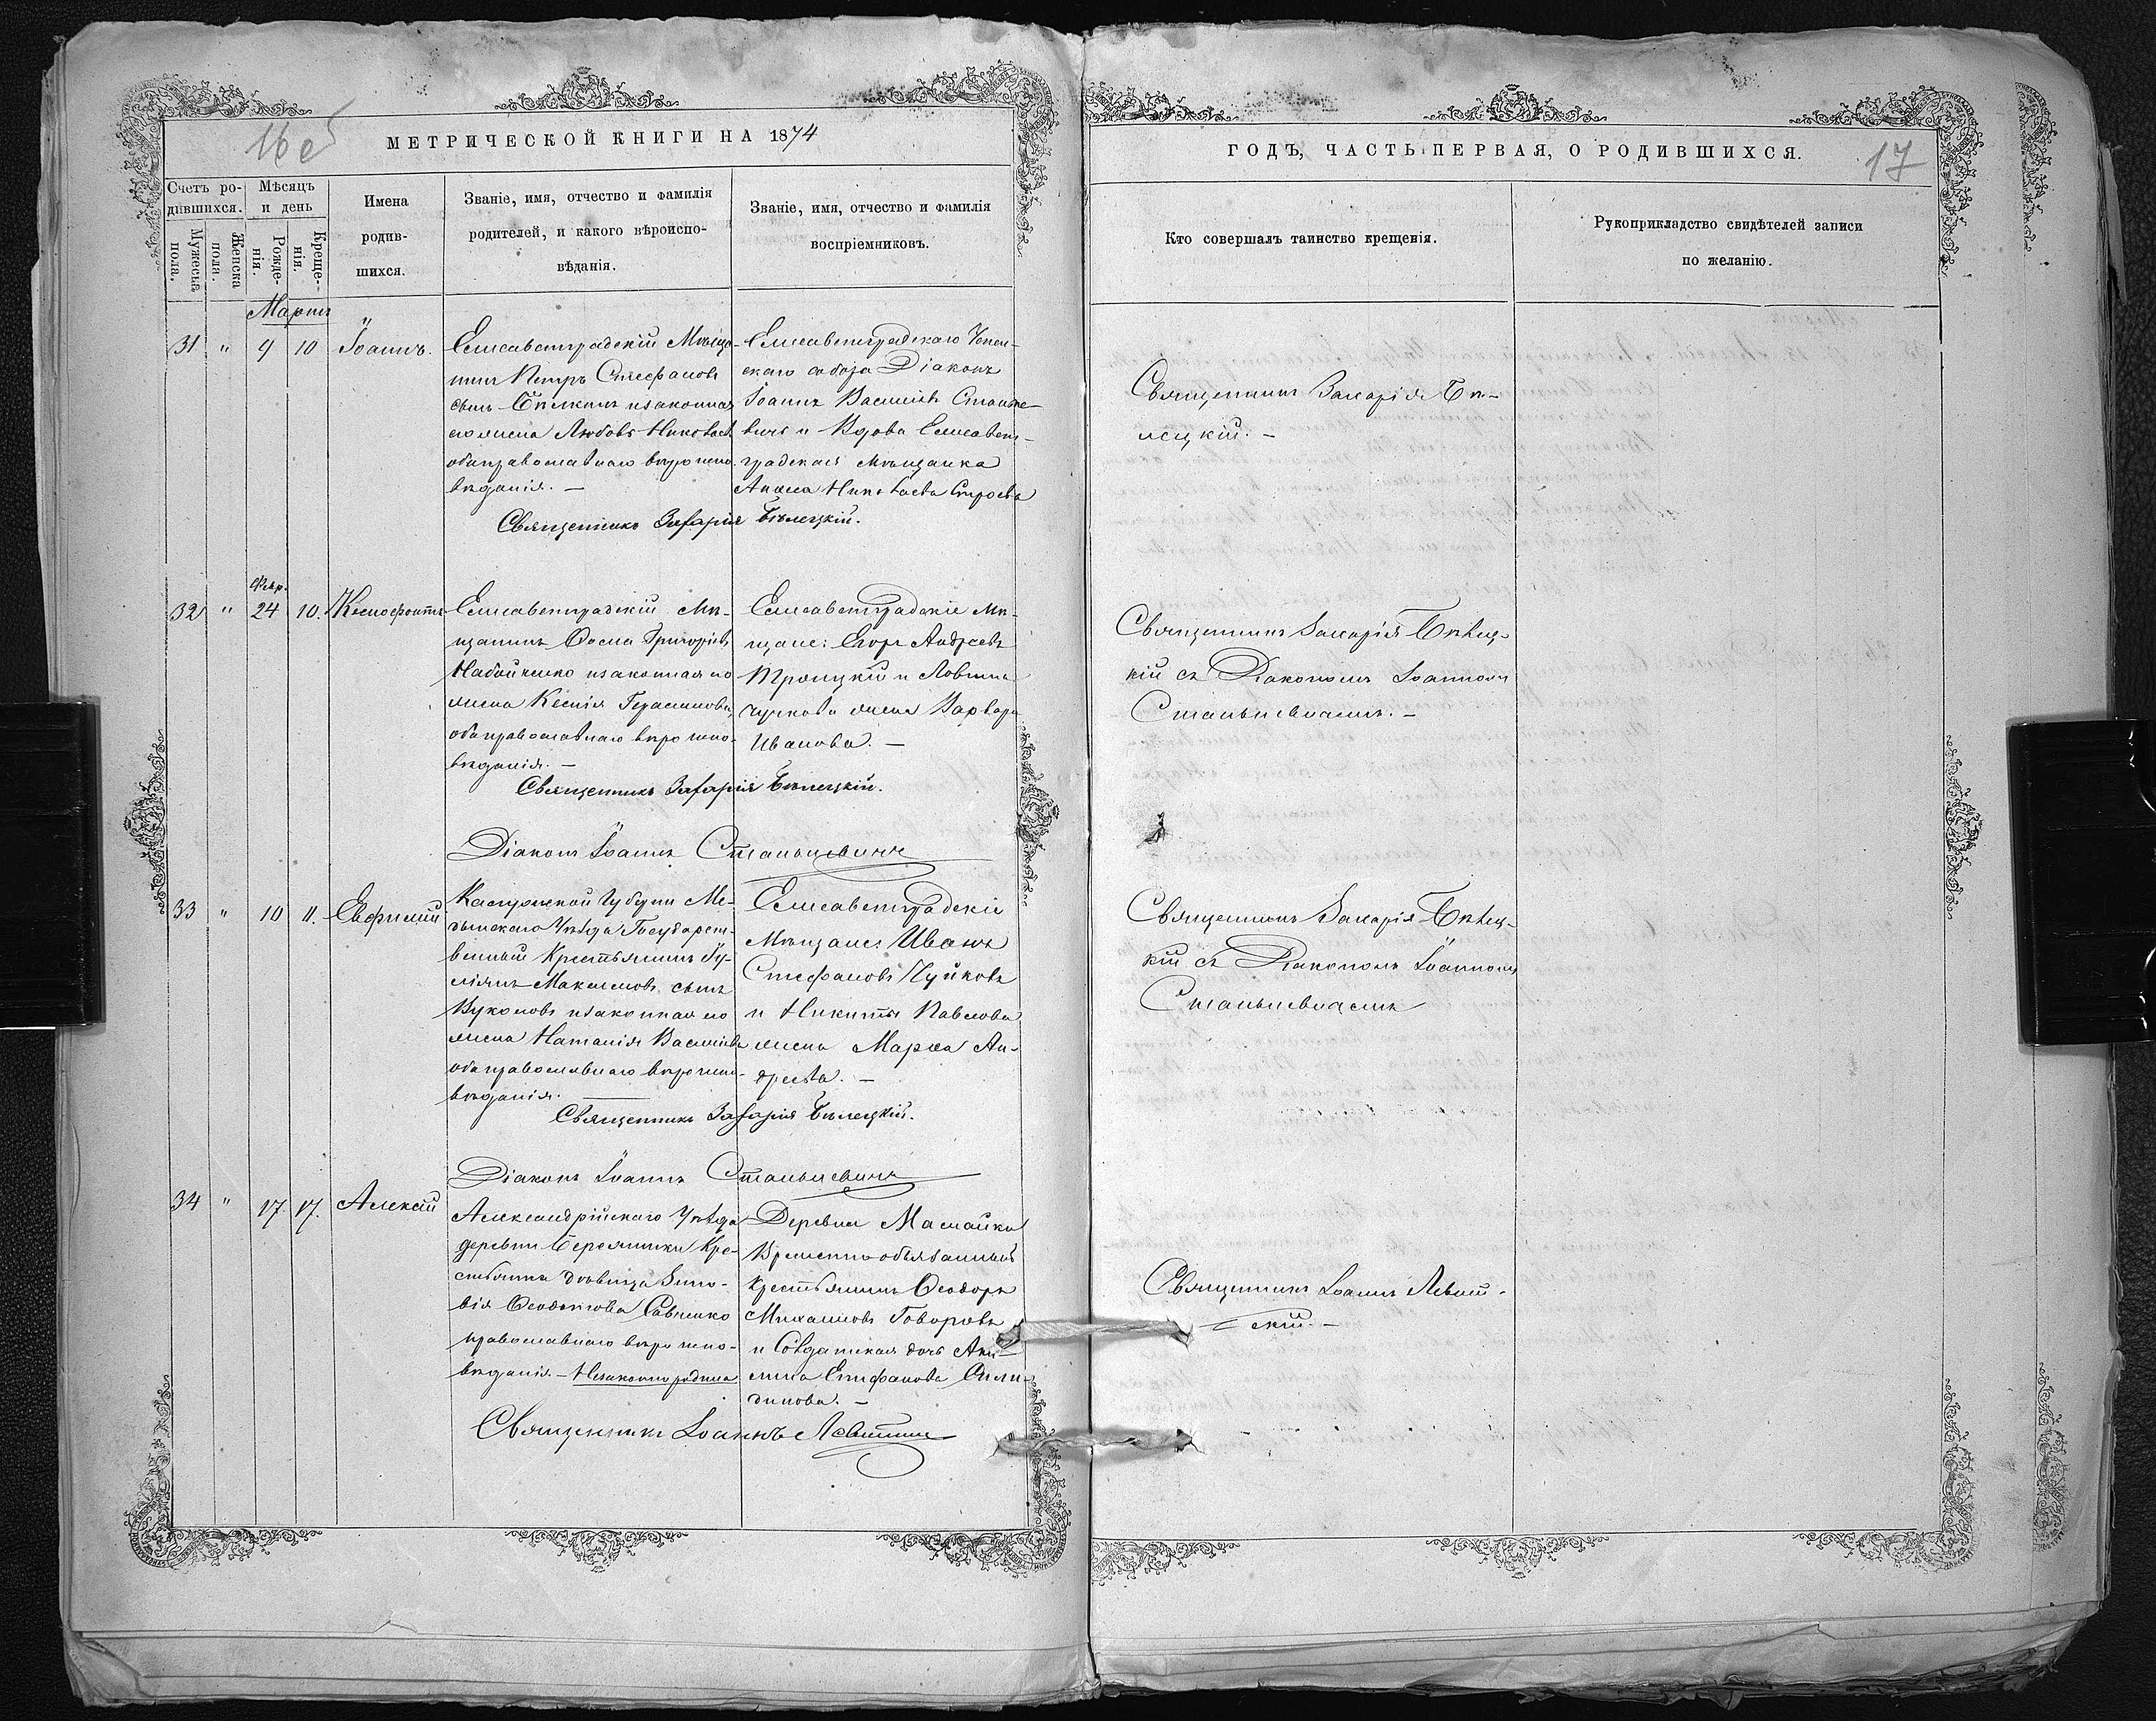 МЕТРИЧЕСКОЙ КНИГИ НА 1874
Счетъ ро-
дившихся.
Мужеска
пола.
Женска
пола.
Мѣсяцъ
и день
Рожде-
нія.
Креще-
нія.
Имена
родив-
шихся.
Званіе, имя, отчество и фамилія
родителей, и какого вѣроиспо-
вѣданія.
Званіе, имя, отчество и фамилія
воспріемниковъ.
Мартъ
31 " 9 10 Іоаннъ.
Елисаветградскій Мѣща-
нинъ Петръ Стефановъ
сынъ и законная
его жена Любовь Николаев.
оба православнаго вѣроиспо-
вѣданія. —
Елисаветградскаго Успен-
скаго собора Діаконъ
Іоаннъ Василіевъ Станке-
вичъ и Вдова Елисавет-
градская мѣщанка
Николаева
Священникъ Захарія Бѣлецкій.
Февр.
32 " 24 10. Ксенофонтъ
Елисаветградскій Мѣ-
щанинъ Ѳома Григорьевъ
Набойченко и законная его
жена Ксенія Герасимова,
оба православнаго вѣроиспо-
вѣданія. —
Елисаветградскіе Мѣ-
щане: Егоръ Андреевъ
Троицкій и
жена Варвара
Иванова. —
Священникъ Захарія Бѣлецкій.
Діаконъ Іоаннъ Станкевичъ
33 " 10 11. Евфимій
Калужской Губерни Ме-
дынскаго Уѣзда Государст-
венный Крестьянинъ Іу-
ліянъ Максимовъ сынъ
Вуколовъ и законная его
жена Наталія Василіева
оба православнаго вѣроиспо-
вѣданія.
Елисаветградскіе
Мѣщане: Иванъ
Стефановъ Чуйковъ
и Никиты Павлова
жена Марѳа Ан-
дреева. —
Священникъ Захарія Бѣлецкій.
Діаконъ Іоаннъ Станкевичъ
34 " 17 17. Алексій
Александрійскаго Уѣзда
деревни Березники Кре-
стьянка дѣвица Зино-
вія Ѳеодотова Савченко
православнаго вѣроиспо-
вѣданія — Незаконно родила
Деревни Мамайки
Временно обязанный
крестьянинъ Ѳеодоръ
Михаиловъ Говоровъ
и Солдатская дочь Аки-
лина Епифанова
Священникъ Іоаннъ
ГОДЪ, ЧАСТЬ ПЕРВАЯ, О РОДИВШИХСЯ.
17
Кто совершалъ таинство крещенія.
Рукоприкладство свидѣтелей записи
по желанію.
Священникъ Захарія Бѣ-
лецкій. —
Священникъ Захарія Бѣлец-
кій съ Діакономъ Іоанномъ
Станкевичемъ. —
Священникъ Захарія Бѣлец-
кій съ Діакономъ Іоанномъ
Станкевичемъ
Священникъ Іоаннъ
скій. —